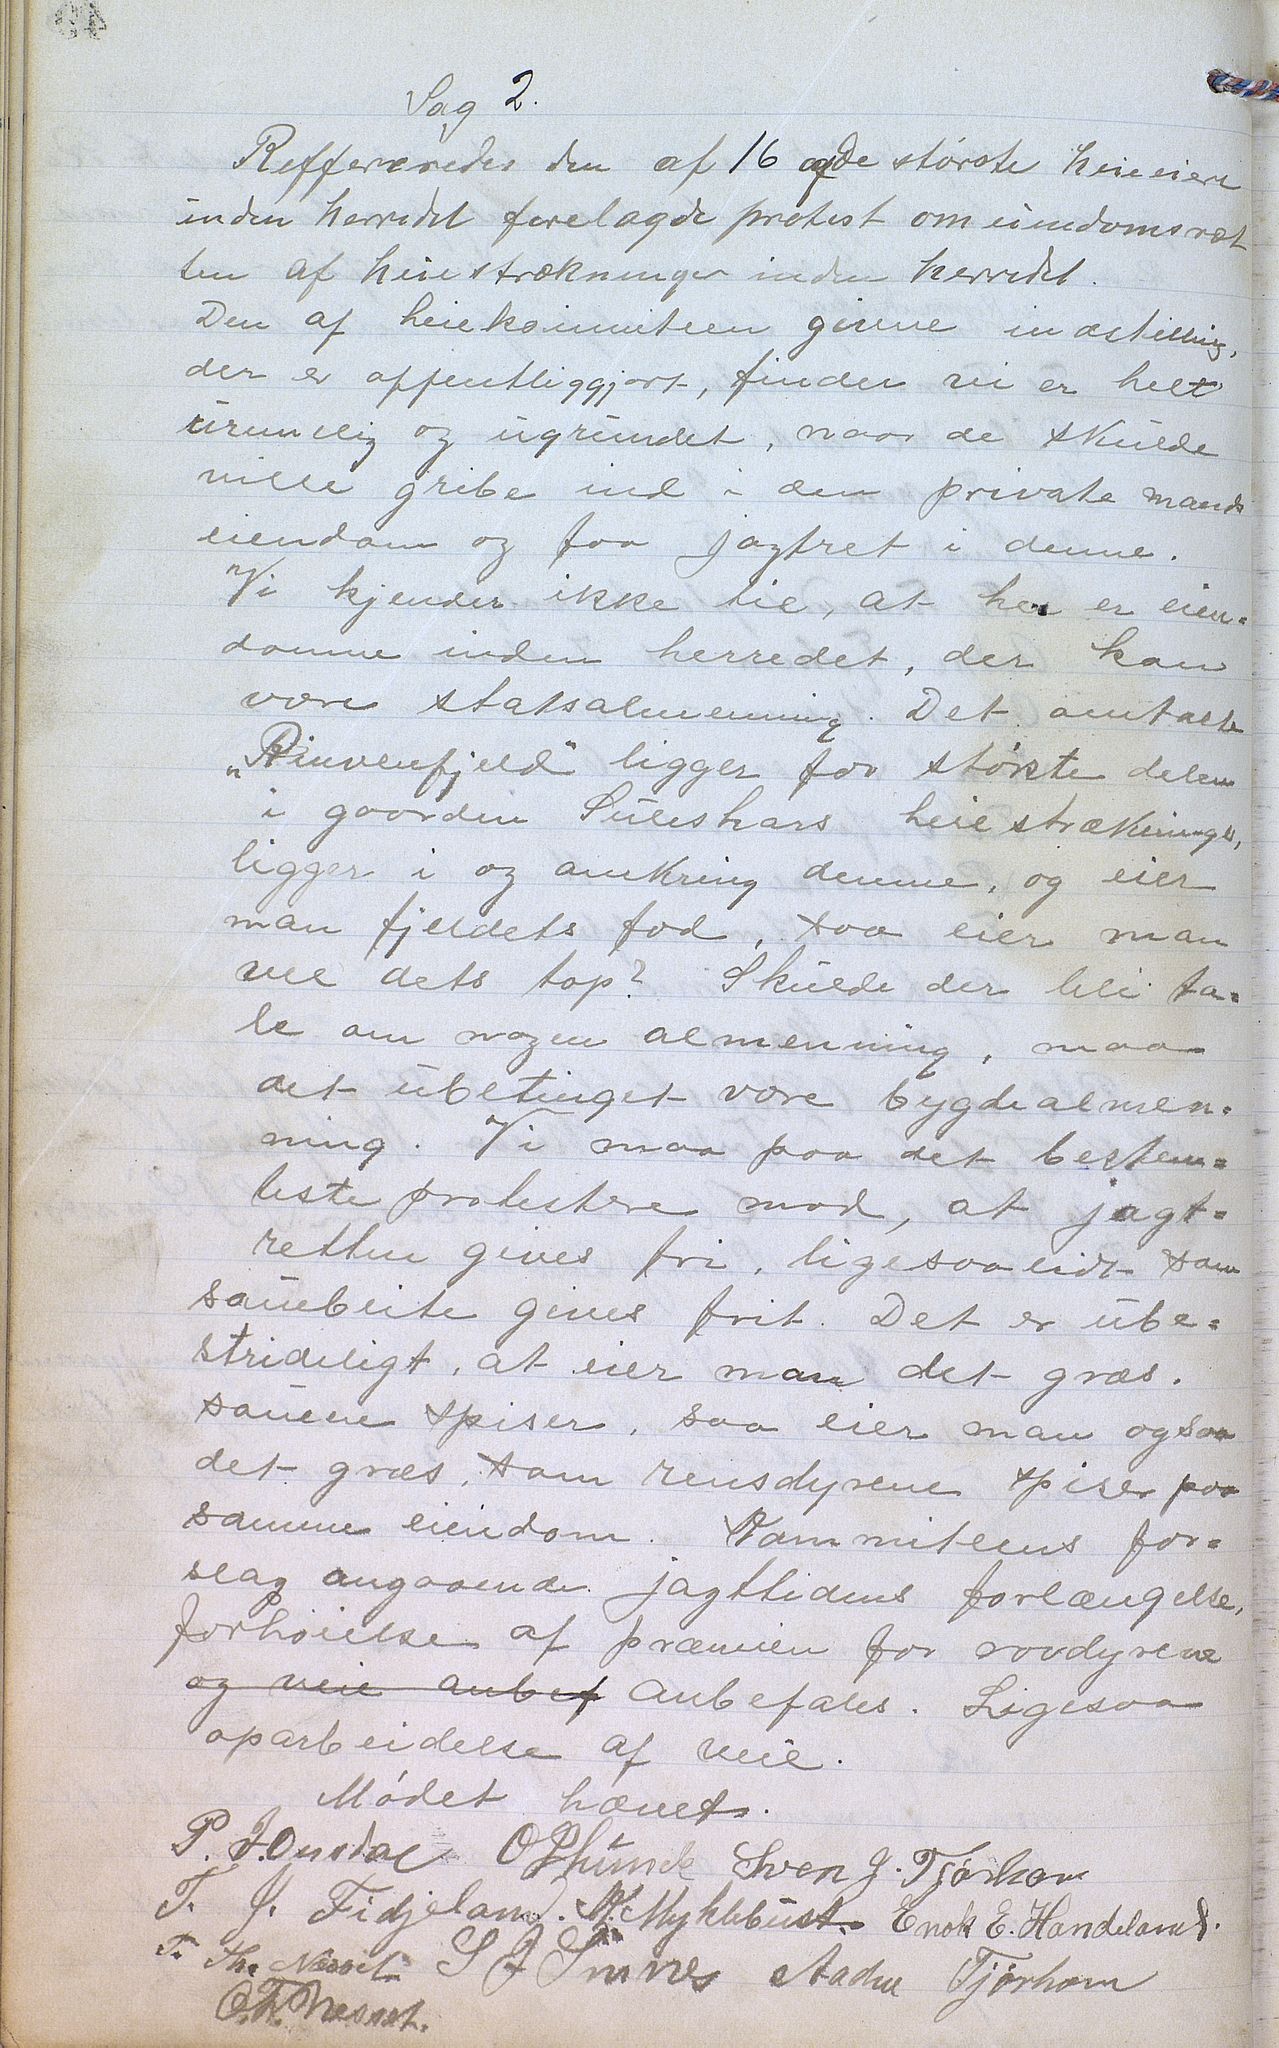 Sag 2.
Reffereredes den af 16 afde største heieiere
inden herredet forelagde protest om eiendomsret
ten af heiestrækninger inden herredet.
Den af heiekommiteen givne indstilling,
der er offentliggjort, finder vi er helt
urimelig og ugrundet, naar de skulde
ville gribe ind i den private mands
eiendom og faa jagtret i denne.
Vi kjender ikke til, at her er eien-
domme inden herredet, der kan
være statsalmenning. Det omtalte
"Rinvenfjeld" ligger for største delen
i gaarden Suleskars heiestrækninger,
ligger i og omkring denne, og eier
man fjeldets fod, saa eier man
vel dets top? Skulde der bli ta-
le om nogen almenning, maa
det ubetinget være bygdealmen-
ning. Vi maa paa det bestem-
teste protestere mod, at jagt-
retten gives fri, ligesaavidt som
sauebeite gives frit. Det er ube-
strideligt, at eier man det græs,
sauene spiser, saa eier man ogsaa
det græs, som rensdyrene spiser paa
samme eiendom. Kommiteens for-
slag angaaende jagttidens forlængelse,
forhøielse af præmien for rovdyrene
og veie anbef anbefales. Ligesaa
oparbeidelse af veie.
Mødet hævet.
P. J. Ousdal O P Lunde Sven J. Tjørhom
T. J. Fidjeland. Myklebust. Enok E. Handeland.
T. Th. Nesset S J Sinnes Aadne Tjørhom
O. T. Nesset.